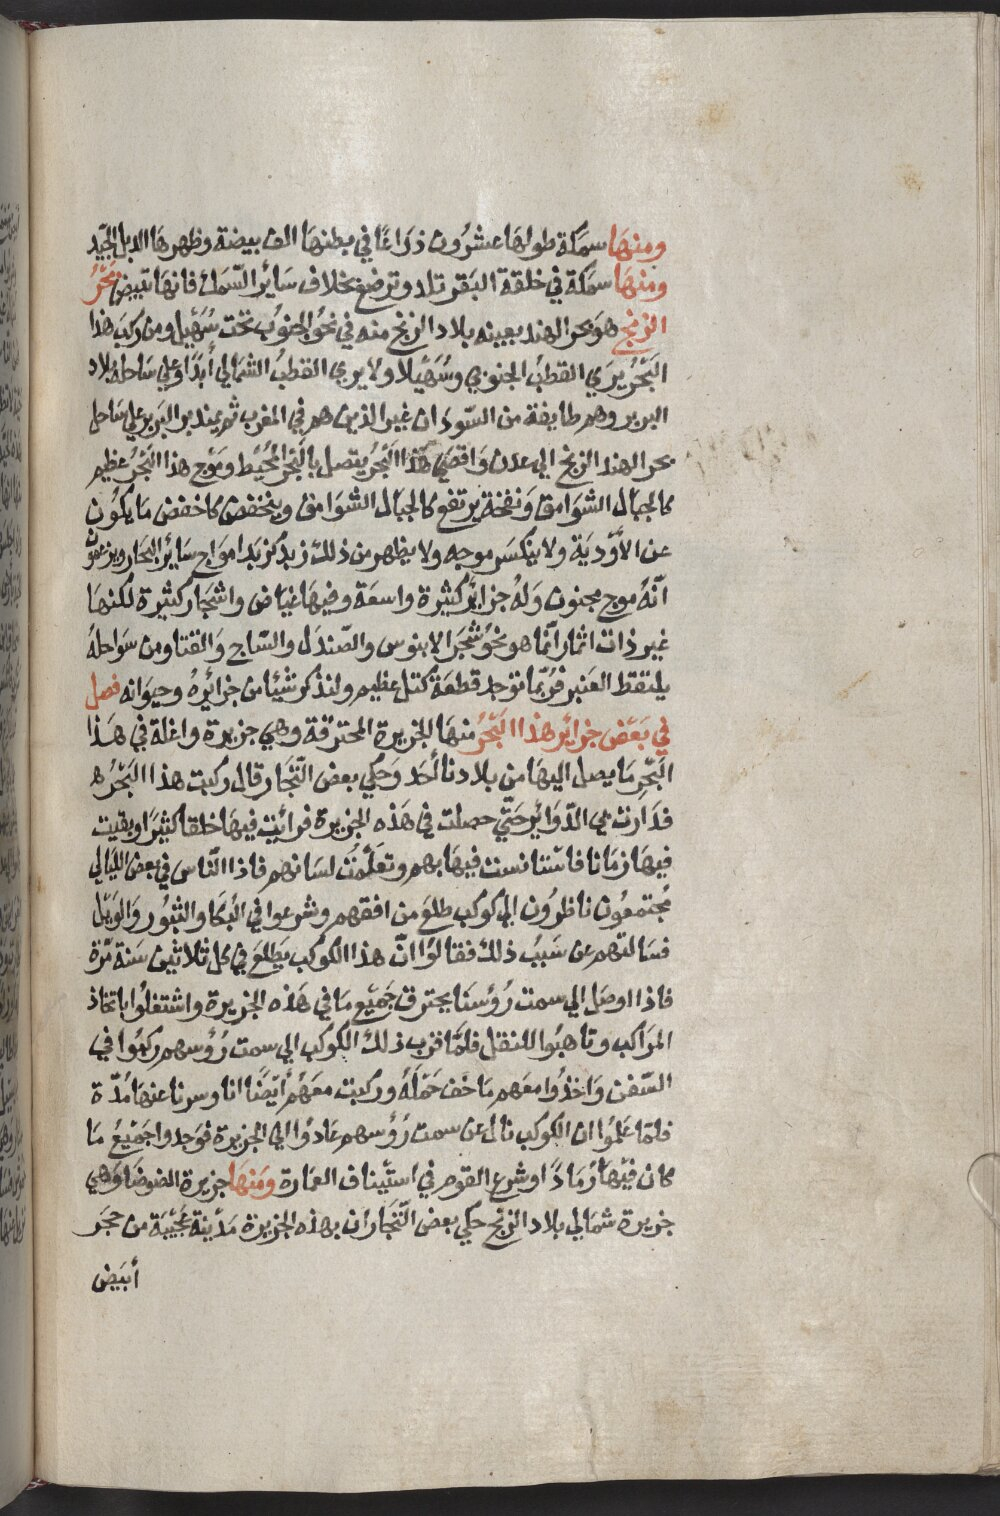 ومنهَا سمَكة طولهَا عشرُون ذرَاعًا في بطنهَا الف بيضة وظهرهَا الدبل الجيّد
ومنهَا سمَكة في خلقة البَقر تلد وترضع بخلاف سَائر السّمك فانهَا تبيض بَحْرُ
الزنج هوَ بحر الهند بعينه بلاد الزنج منه في نحوُ الجنوُب تحْت سُهَيْل ومن ركبَ هذا
البَحْرَ يرَي القطبُ الجنوبي وسُهَيْلا ولا يري القطبُ الشمَالي أبَدًا وعلي سَاحله بلاد
البربر وهم طايفة من السّودَان غير الذين هم في المغرب ثم يمتد بر البَربر علي سَاحل
بحر الهند الزنج الي عدن وَاقصَي هَذا البَحْرُ يتصل بالبَحر المحُيْط ومَوْج هذا البَحْر عظيم
كالجبَال الشوَامق وَنفخة يرتفع كالجبَال الشوَامق وينخفض كاخفض مَا يكُون
عن الاَوْديَة ولا ينكسَر موجه ولا يظهر من ذلك زبد كزبَد امواج سَائر البحَار ويزعمُون
انهُ موج مجنون وَلهُ جزائر كثيرة واسعَة وفيهَا غيَاض واشجَار كثيرة لكنهَا
غير ذات اثمار انّما هو نحوُ شجَر الابنوس والصّندَل والسّاج وَالقنا ومن سوَاحلهُ
يلتقط العَنبر فرُبّما توجد قطعَة كتل عظيم ولنذكر شيئا من جزائرهُ وحيوَانه فصل
في بَعْض جزائر هَذا البَحْرُ منهَا الجزيرة المحترقة وهي جزيرة واغلة في هَذا
البَحْر مَا يصل اليهَا من بلادنا أحَد وَحكي بعض التجَار قال ركبت هذا البَحْرُ ه
فدَارت بي الدّوَائر حَتّي حصلت في هَذه الجزيرة فرائيت فيهَا خلقا كثيرَا وبقيت
فيهَا زمَانا فاسْتانست فيهَا بهم وتعَلّمتُ لسَانهم فاذا النّاس في بعض الليَالي
مُجتمعُون ناظرُون إلي كوكب طلعَ من افقهم وشرعوا في البُكا والثبُور وَالوَيْل
فسَالتهم عن سَببُ ذلك فقالوُا انّ هذا الكوكب يَطلعَ في كل ثلاثين سَنة مَرّة
فاذا اوصَل إلي سمت رُؤسنَا يحترق جَميْع مَا في هَذه الجزيرة واشتغلوُا باتخاذ
المرَاكب وتاهبُوا للنقل فلمّا قرب ذلك الكوُكب الي سمت رُؤسهم ركبُوا في
السّفن وَاخذُوا معَهم مَا خَفّ حَملَهُ وركبت معَهُم أيْضًا انا وسرنا عنهَا مُدّة
فلمّا عَلمُوا ان الكوكب نال عن سمت رُؤسهم عَادوُا الي الجزيرة فوَجدوا جَميْعُ مَا
كان فيْهَا رمَادًا وشرع القوم في استيناف العمَارة وَمنهَا جزيرة الضوضَا وَهي
جزيرة شمَالي بلاد الزنج حكي بعض التّجَار ان بهذه الجزيرة مَديْنة عَجيْبة من حجَر
أبيَض